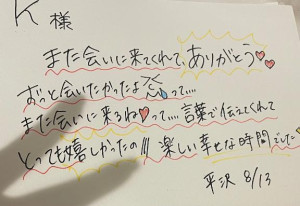 K 様
また会いに来てくれて、ありがとう♥♥
ずっと会いたかったよ って....
また会いに来るね♥って.... 言葉で伝えてくれて
とっても嬉しかったの!!! 楽しい幸せな時間でした
平沢 8/13